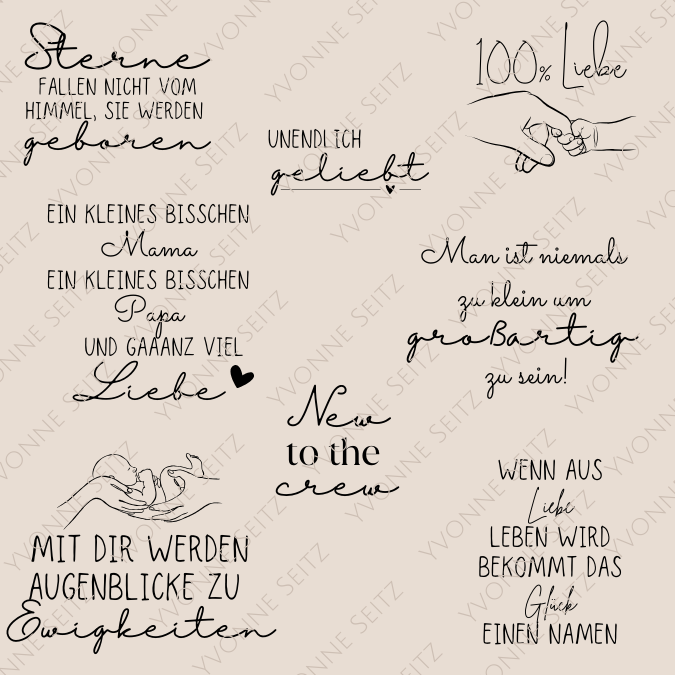 Sterne
FALLEN NICHT VOM
HIMMEL, SIE WERDEN
geboren
100% Liebe
UNENDLICH
geliebt
EIN KLEINES BISSCHEN
Mama
EIN KLEINES BISSCHEN
Papa
UND GAAANZ VIEL
Liebe
Man ist niemals
zu klein um
großartig
zu sein!
New
to the
crew
MIT DIR WERDEN
AUGENBLICKE ZU
Ewigkeiten
WENN AUS
Liebe
LEBEN WIRD
BEKOMMT DAS
Glück
EINEN NAMEN
YVONNE SEITZ